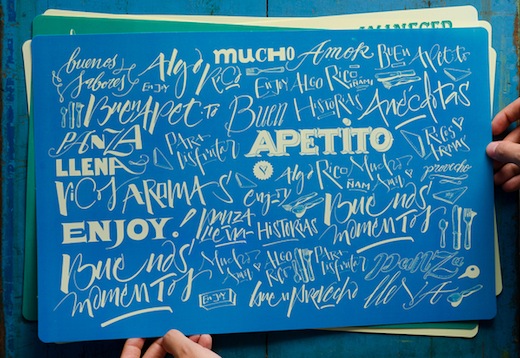 AMANECER
buenos sabores
Algo Rico
mucho Amor
Buen Apetito
ENJOY
ENJOY Algo Rico
ÑAM!
Buen Apetito
Buen Historias
Anécdotas
PANZA LLENA
PARA disfrutar
APETITO
Ricos AROMAS
LLENA
Ricos AROMAS
Algo Rico
ÑAM
Mucho
provecho
ENJOY!
enjoy
PANZA LLENA
HISTORIAS
Buenos momentos
Buenos momentos
Mucho
Algo Rico
PARA disfrutar
panza
ENJOY
buen provecho
llena